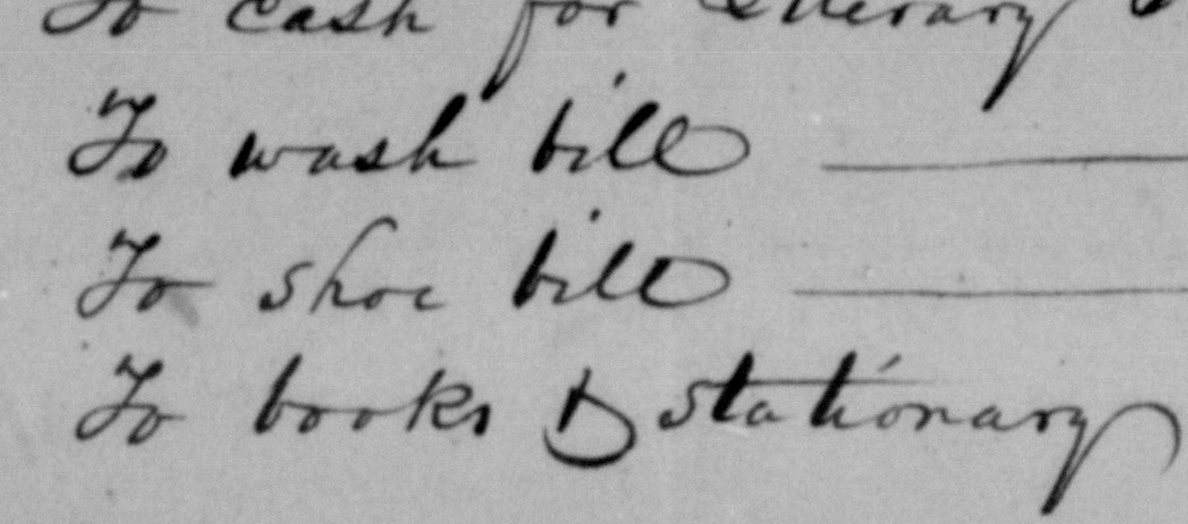 To cash for Literary
To wash bill
To shoe bill
To books & stationary